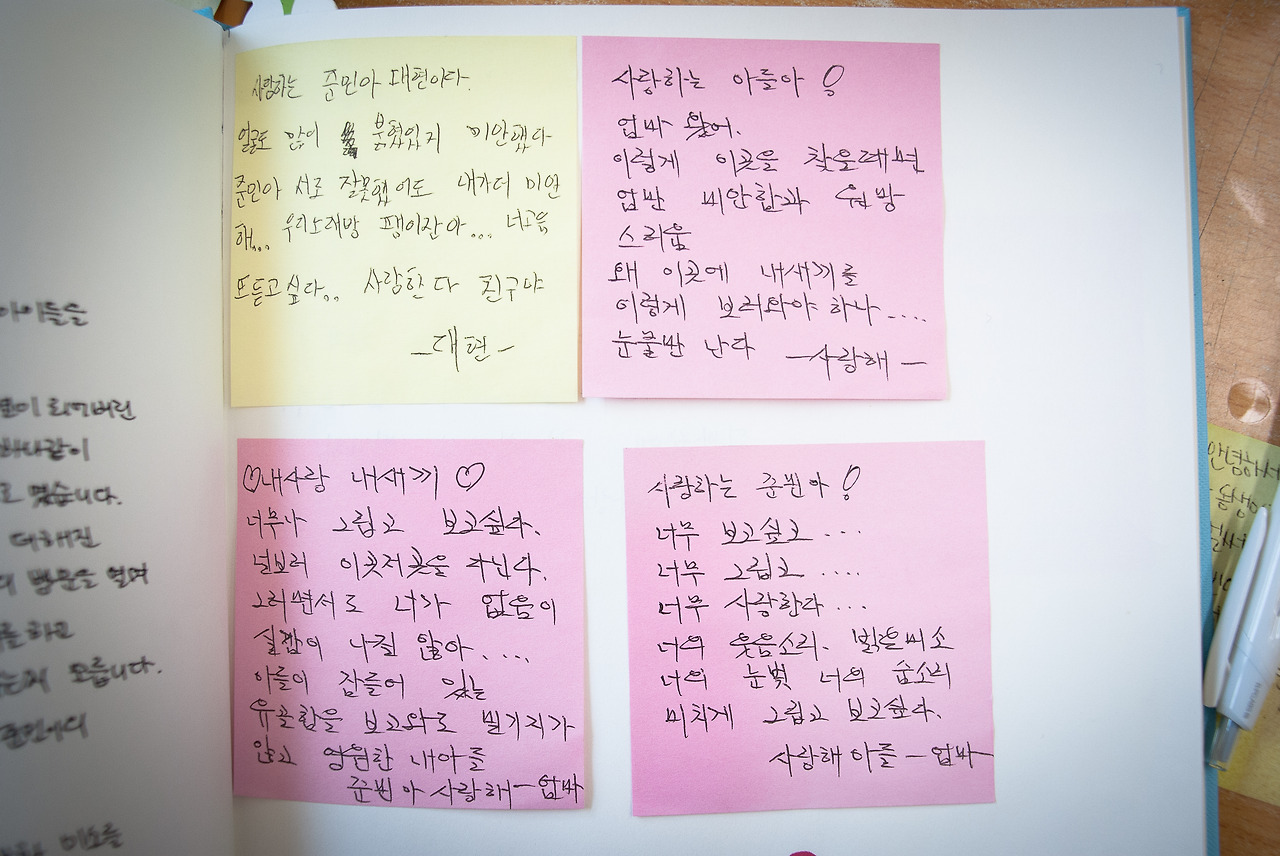 사랑하는 준민아 대편이다.
얼굴도 많이 붓혔있지 미안했다
준민아 서로 잘못했어도 내가더 미안
해.. 우리노래방 팸이잔아... 너목
또듣고싶다.. 사랑한다 친구야
-대현-
사랑하는 아들아!
엄마 왔어.
이렇게 이곳을 찾을때면
엄만 미안함과 원망
스러움
왜 이곳에 내새끼를
이렇게 보러와야 하나....
눈물만 난다 -사랑해-
♡내사랑 내새끼♡
너무나 그립고 보고싶다.
널보러 이곳저곳을 다닌다.
그러면서도 너가 없음이
실감이 나질 않아....
아들이 잠들어 있는
유골함을 보고와도 믿기지가
않고 영원한 내아들
준민아 사랑해-엄마
사랑하는 준민아!
너무 보고싶고....
너무 그립고....
너무 사랑한다...
너의 웃음소리. 밝은미소
너의 눈빛 너의 숨소리
미치게 그립고 보고싶다.
사랑해 아들-엄마
아이들을
이 되어버린
바다같이
로 했습니다.
더해진
방문을 열며
하고
모릅니다.
준민이의
미소를
안녕하세